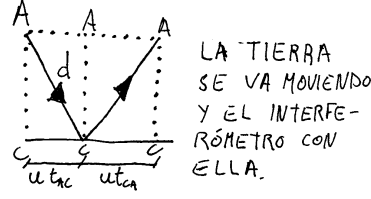 A A A
d
C C C
u tAC u tCA
LA TIERRA
SE VA MOVIENDO
Y EL INTERFE-
RÓMETRO CON
ELLA.